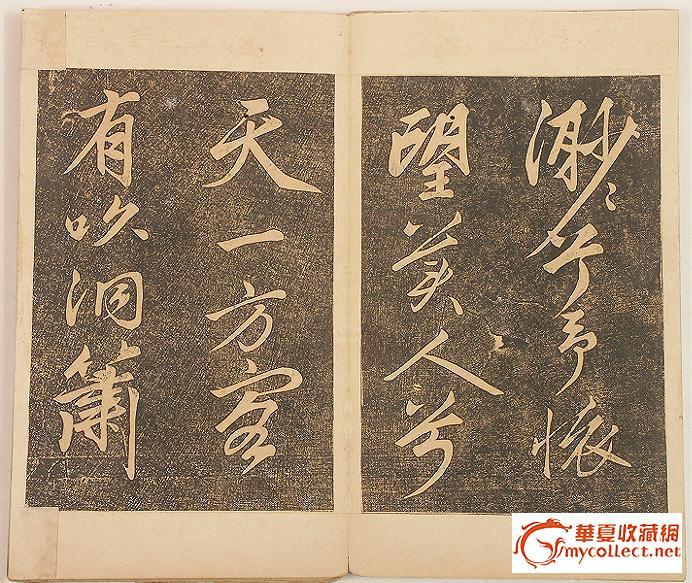 渺〻兮予懷
望美人兮
天一方客
有吹洞簫
華夏收藏網
mycollect.net